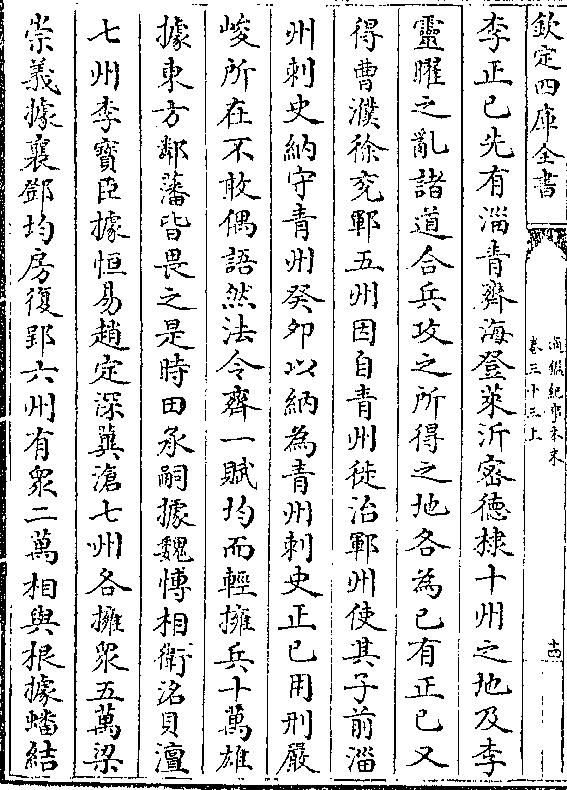 欽定四庫全書
通鑑紀事本末
卷三十三上
十四
李正已先有淄青齊海登萊沂密德棣十州之地及李
靈曜之亂諸道合兵攻之所得之地各為已有正已又
得曹濮徐兖鄆五州因自青州徙治鄆州使其子前淄
州刺史納守青州癸卯以納為青州刺史正已用刑嚴
峻所在不敢偶語然法令齊一賦均而輕擁兵十萬雄
據東方鄰藩皆畏之是時田承嗣據魏博相衛洺貝澶
七州李寶臣據恒易趙定深冀滄七州各擁衆五萬梁
崇義據襄鄧均房復郢六州有衆二萬相與根據蟠結